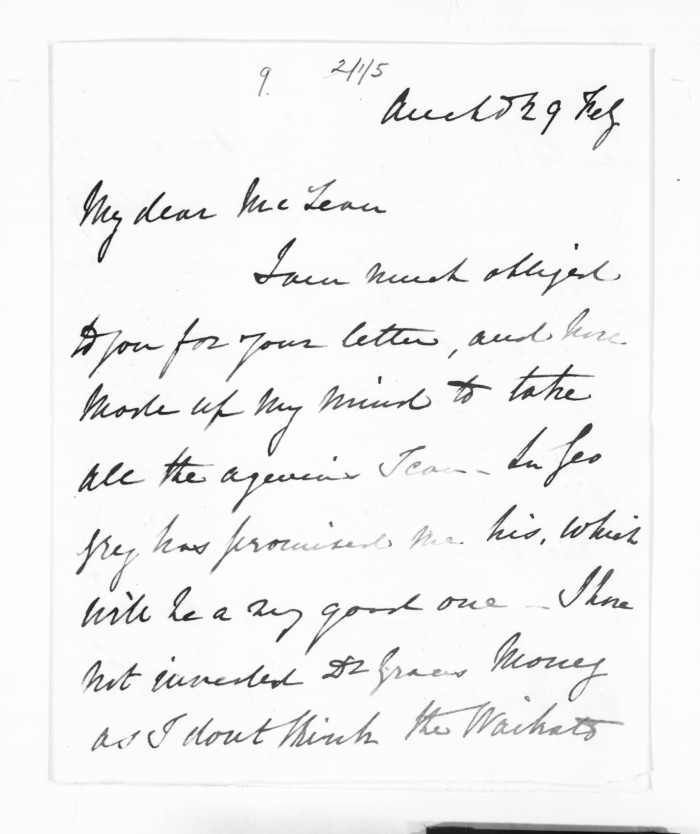 9. 2/1/5
Auckd 29 Feby
My dear McLean
I am much obliged
to you for your letter, and have
made up my mind to take
all the agencies I can - Sir Geo
Grey has promised me his, which
will be a very good one - I have
not invested Dr Graces Money
as I dont think the Waikato